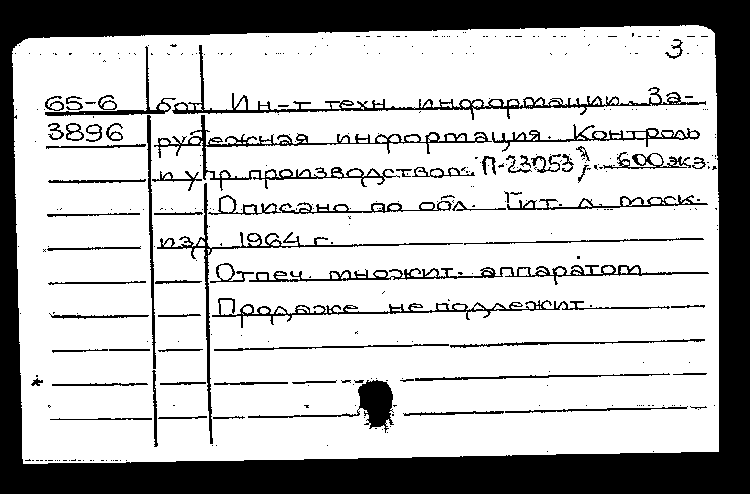 3
65-6 бот. Ин-т техн. информации. За-
3896 рубежная информация. Контроль
и упр. производством. П-23053). 600 экз.
Описано по обл. Тит. л. моск.
изд. 1964 г.
Отпеч. множит. аппаратом
Продаже не подлежит.
*